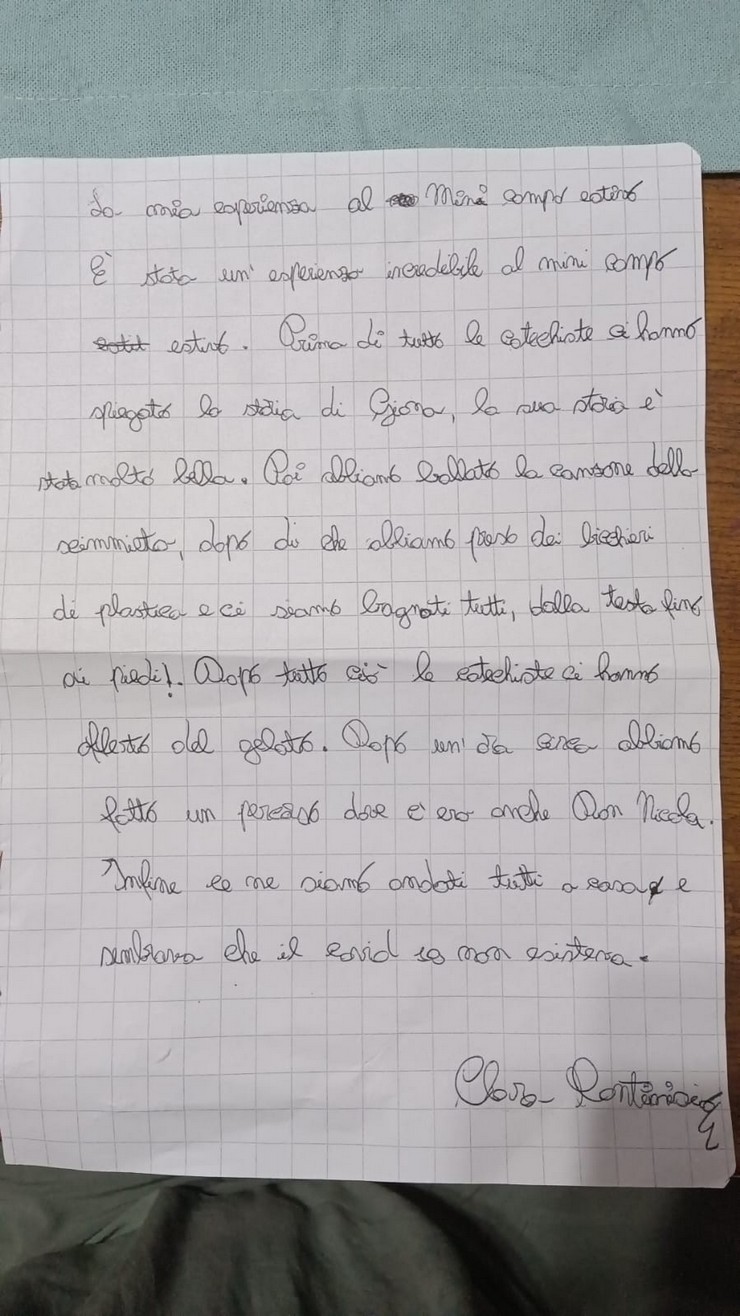 La mia esperienza al Mini campo estivo
È stata un' esperienza incredibile al mini campo
estivo. Prima di tutto le catechiste ci hanno
spiegato la storia di Giona, la sua storia è
stata molto bella. Poi abbiamo ballato la canzone della
scimmieta, dopo di che abbiamo preso dei bicchieri
di plastica e ci siamo bagnati tutti, dalla testa fino
ai piedi!. Dopo tutto ciò le catechiste ci hanno
offerto del gelato. Dopo un' ora circa abbiamo
fatto un percorso dove c'era anche Don Nicola.
Infine ce ne siamo andati tutti a casa e
sembrava che il covid 19 non esisteva.
Clara